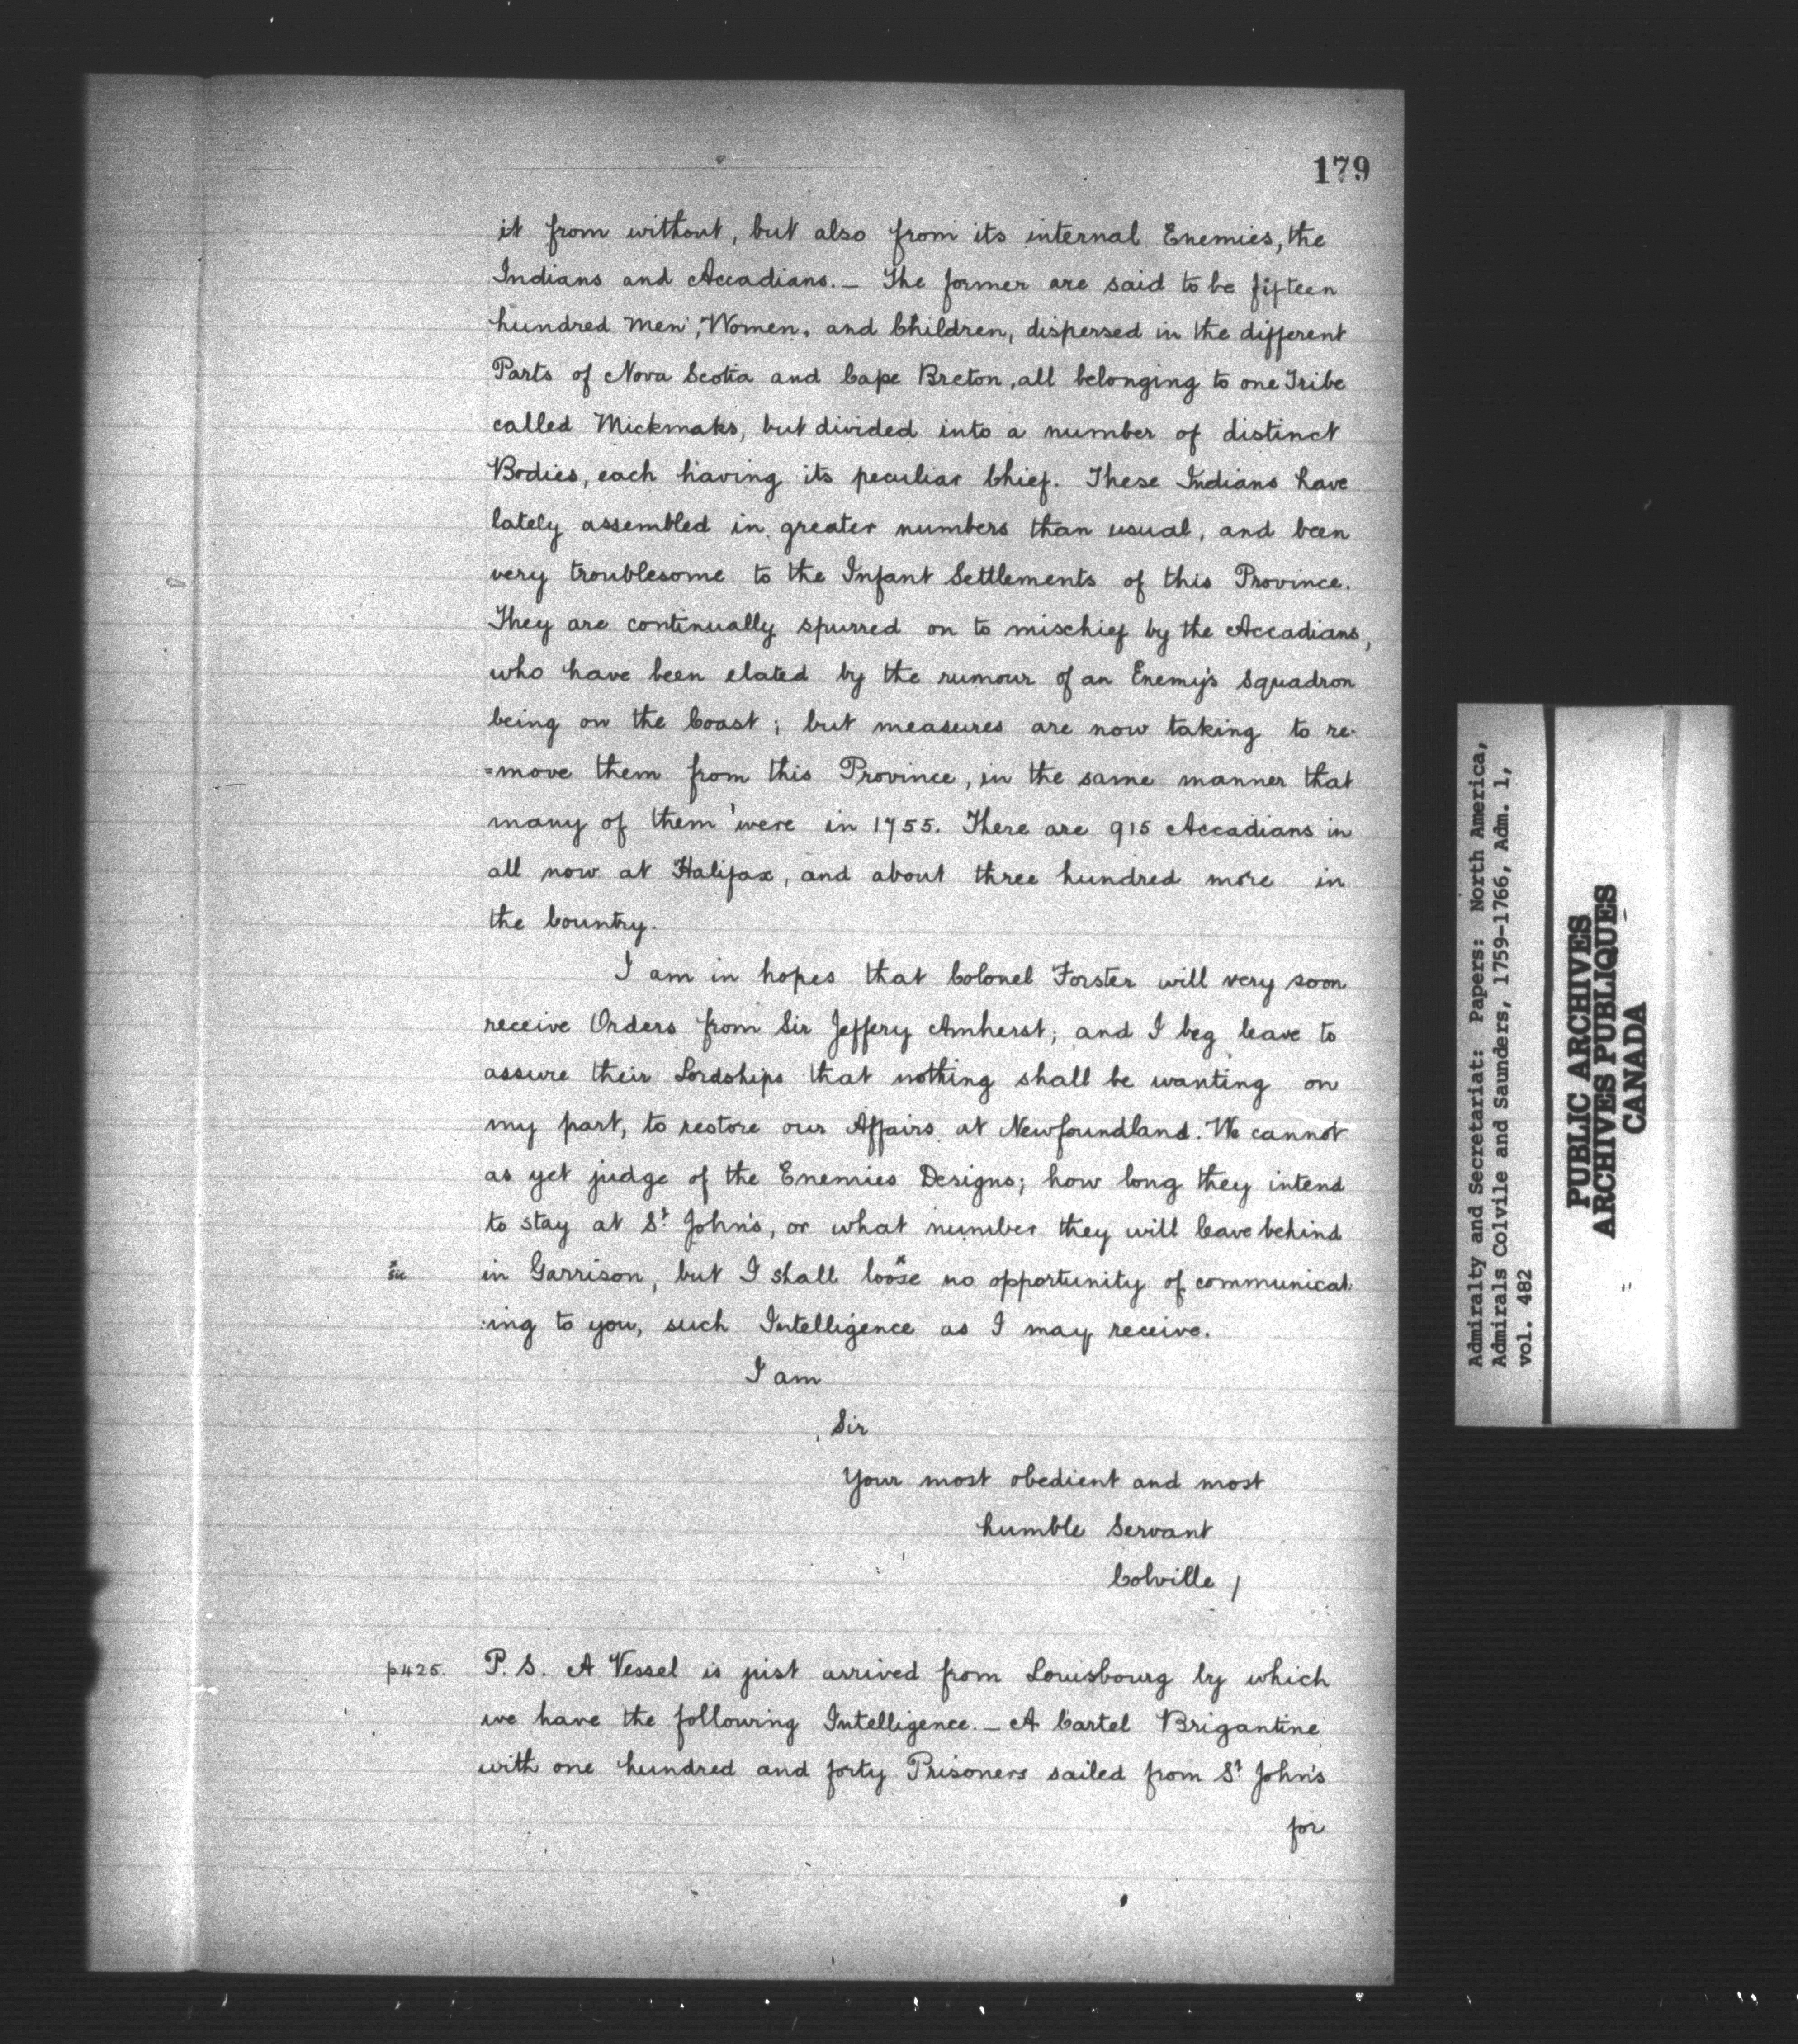 179
it from without, but also from its internal Enemies, the
Indians and Accadians. — The former are said to be fifteen
hundred Men, Women, and Children, dispersed in the different
Parts of Nova Scotia and Cape Breton, all belonging to one Tribe
called Mickmaks, but divided into a number of distinct
Bodies, each having its peculiar Chief. These Indians have
lately assembled in greater numbers than usual, and been
very troublesome to the Infant Settlements of this Province.
They are continually spurred on to mischief by the Accadians,
who have been elated by the rumour of an Enemy's Squadron
being on the Coast; but measures are now taking to re-
=move them from this Province, in the same manner that
many of them were in 1755. There are 915 Accadians in
all now at Halifax, and about three hundred more in
the Country.
I am in hopes that Colonel Forster will very soon
receive Orders from Sir Jeffery Amherst; and I beg leave to
assure their Lordships that nothing shall be wanting on
my part, to restore our Affairs at Newfoundland. We cannot
as yet judge of the Enemies Designs; how long they intend
to stay at St. John's, or what number they will leave behind
* sic in Garrison, but I shall loose* no opportunity of communicat:
:ing to you, such Intelligence as I may receive.
I am
Sir
Your most obedient and most
humble Servant
Colville /
p425. P. S. A Vessel is just arrived from Louisbourg by which
we have the following Intelligence. — A Cartel Brigantine
with one hundred and forty Prisoners sailed from St John's
for
Admiralty and Secretariat: Papers: North America,
Admirals Colvile and Saunders, 1759-1766, Adm. 1,
vol. 482
PUBLIC ARCHIVES
ARCHIVES PUBLIQUES
CANADA